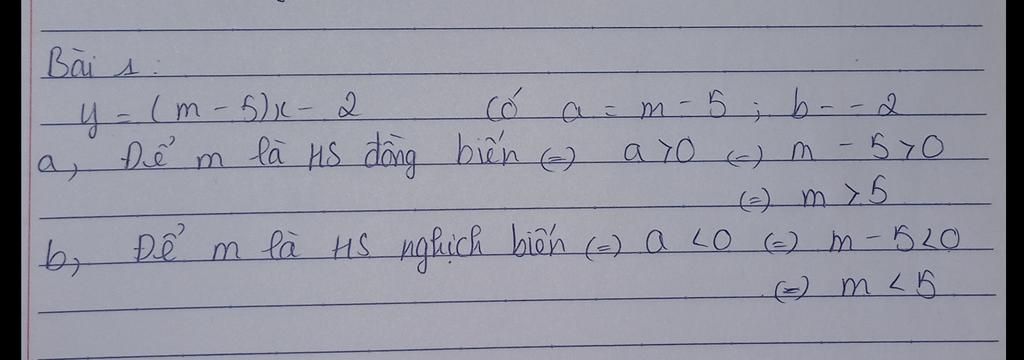 Bài 1:
y = (m - 5)x - 2 Có a = m - 5 ; b = - 2
a, Để m là HS đồng biến (=) a > 0 (=) m - 5 > 0
(=) m > 5
b, Để m là HS nghịch biến (=) a < 0 (=) m - 5 < 0
(=) m < 5